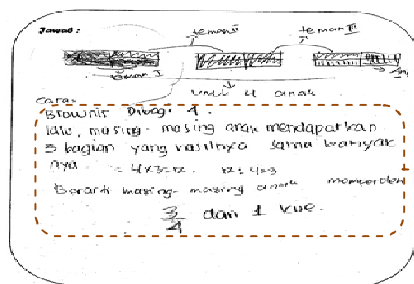 Jawab :
teman II
teman III
teman I
untuk 4 anak
cara:
Brownis dibagi 4.
lalu, masing-masing anak mendapatkan
3 bagian yang hasilnya sama banyak
nya = 4x3=12. 12:4=3
Berarti masing-masing anak memperoleh
3/4 dari 1 kue.